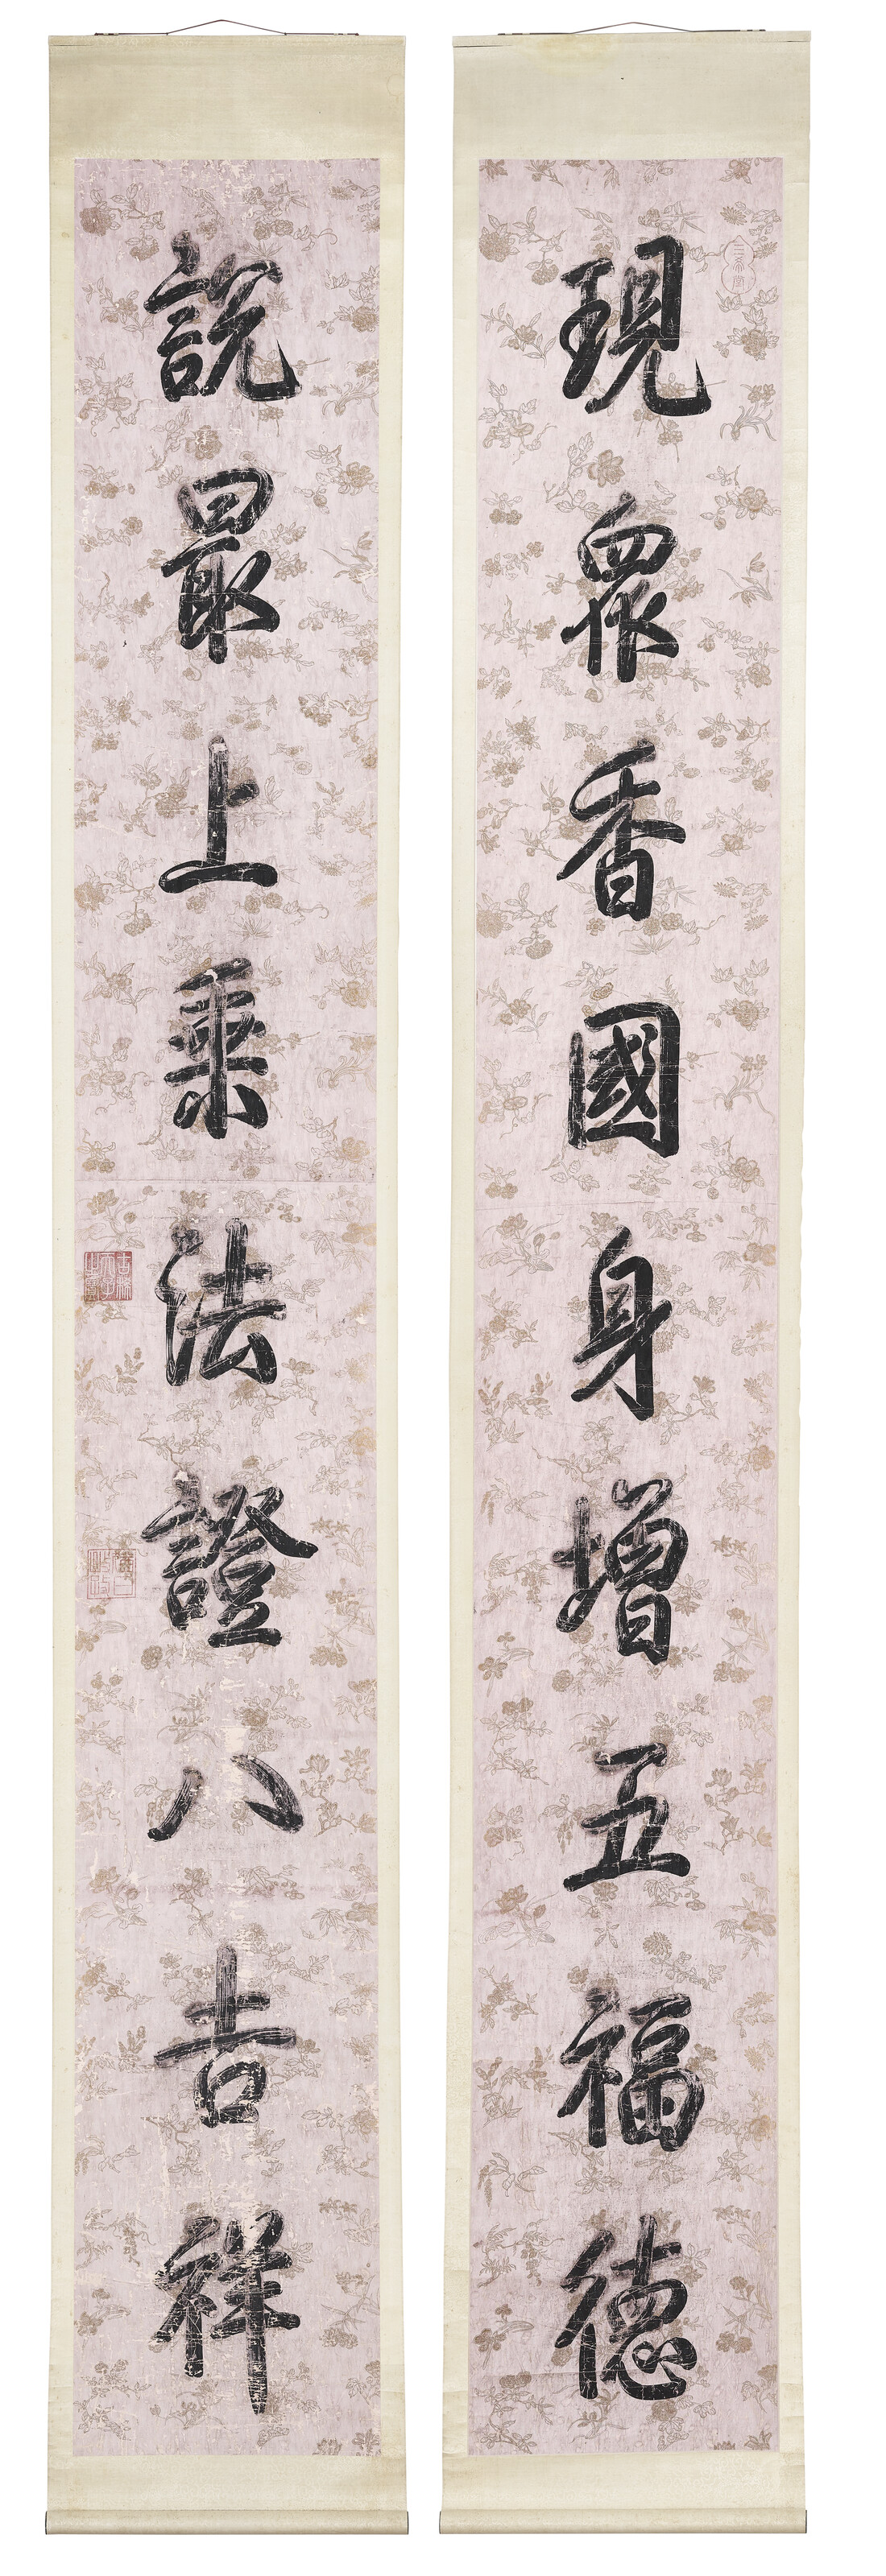 現眾香國身增五福德
三希堂
說最上乘法證八吉祥
古稀天子之寶